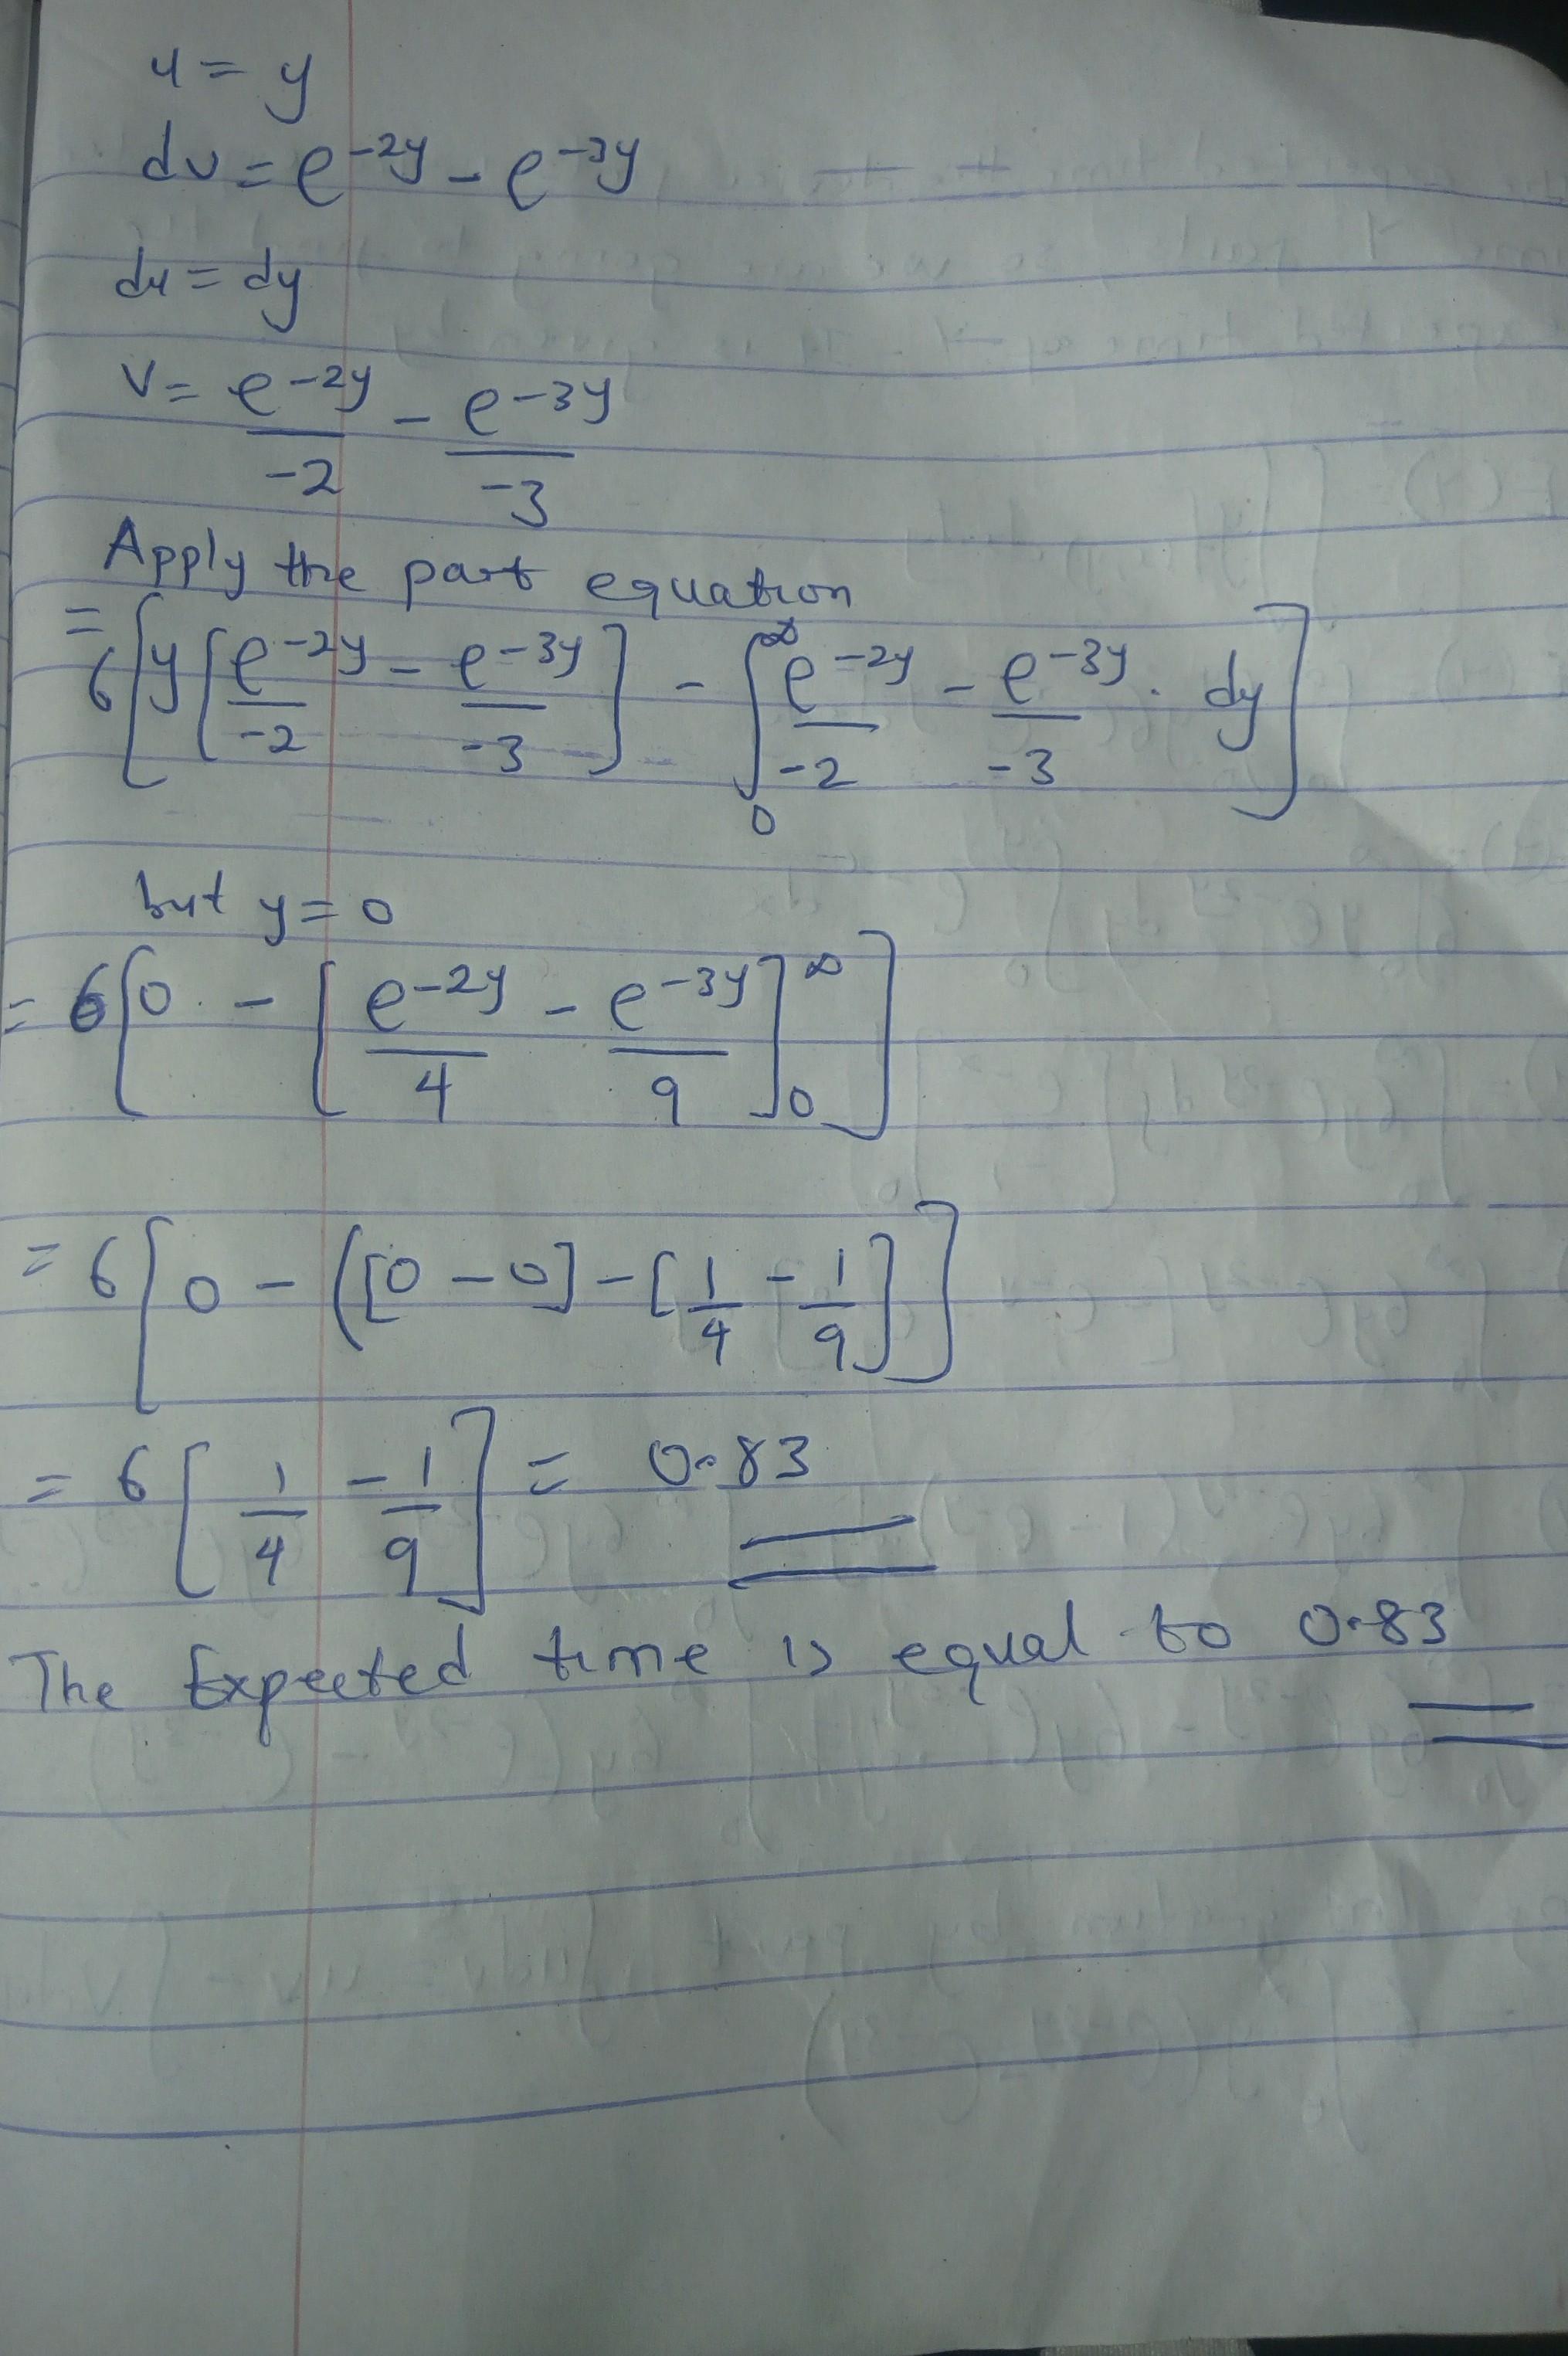 u = y
dv = e^-2y - e^-3y
du = dy
v = e^-2y/-2 - e^-3y/-3
Apply the part equation
= 6[y[e^-2y/-2 - e^-3y/-3] - ∫_0^∞ e^-2y/-2 - e^-3y/-3 . dy]
but y = 0
= 6[0 - [e^-2y/4 - e^-3y/9]_0^∞]
= 6[0 - ([0 - 0] - [1/4 - 1/9]]
= 6[1/4 - 1/9] = 0.83
The Expected time is equal to 0.83